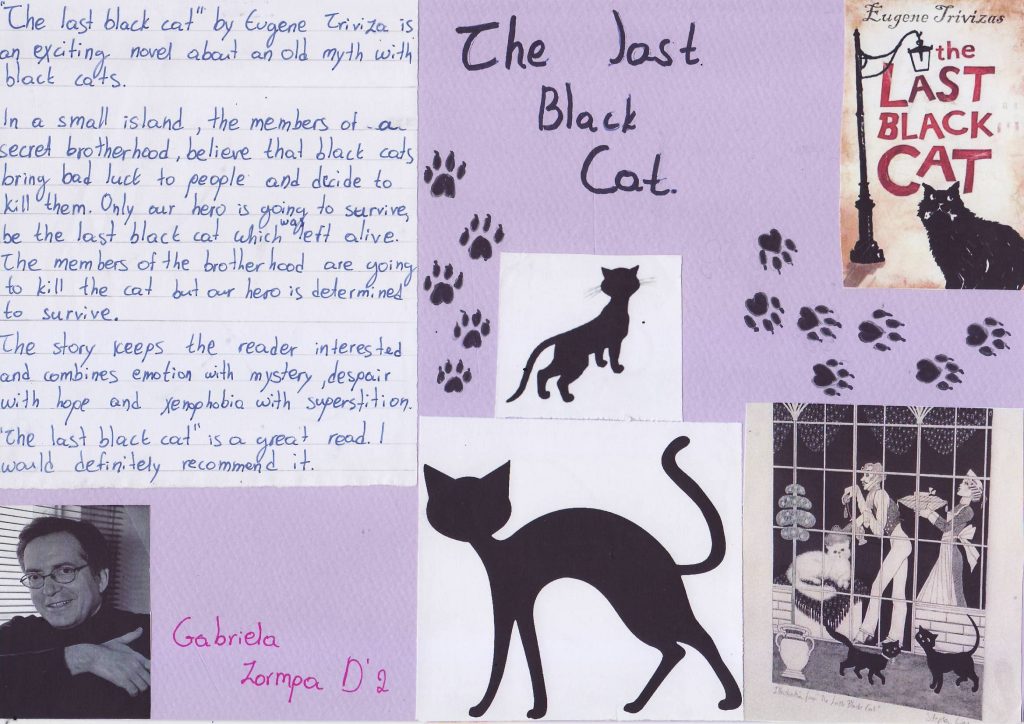 "The last black cat" by Eugene Triviza is
an exciting novel about an old myth with
black cats.
In a small island, the members of a
secret brotherhood, believe that black cats
bring bad luck to people and decide to
kill them. Only our hero is going to survive,
be the last black cat which was left alive.
The members of the brotherhood are going
to kill the cat but our hero is determined
to survive.
The story keeps the reader interested
and combines emotion with mystery, despair
with hope and xenophobia with superstition.
"The last black cat" is a great read. I
would definitely recommend it.
Gabriela
Zormpa D'2
The last
Black
Cat.
Eugene Trivizas
the
LAST
BLACK
CAT
Illustration from "The Last Black Cat"